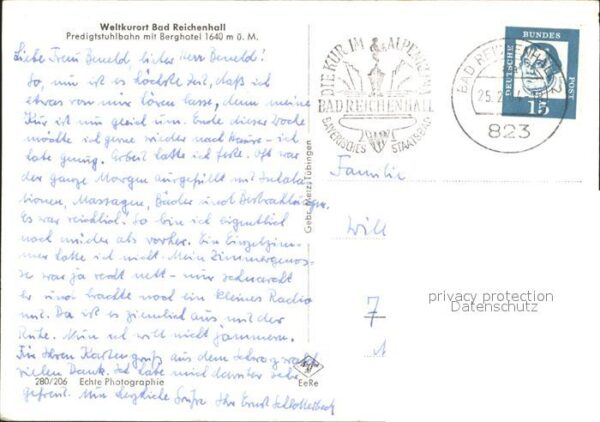 Weltkurort Bad Reichenhall
Predigtstuhlbahn mit Berghotel 1640 m ü. M.
Liebe Frau Beneld, lieber Herr Beneld!
So, nun ist es höchste Zeit, daß ich
etwas von mir hören lasse, denn meine
Kur ist nun gleich um. Ende dieser Woche
möchte ich gerne wieder nach Hause - ich
habe genug. Erbeit hatte ich feste. Oft war
der ganze Morgen ausgefüllt mit Inhala-
tionen, Massagen, Bäder und Bestrahlungen.
Es war reichlich. So bin ich eigentlich
noch müder als vorher. Ein Einzelzim-
mer hatte ich nicht. Mein Zimmergenos-
se war ja recht nett - nur schnarcht
er und brachte noch ein kleines Radio
mit. Da ist es ziemlich aus mit der
Ruhe. Nun ich will nicht jammern.
Für Ihren Kartengruß aus dem Schwarzwald
vielen Dank. Ich habe mich darüber sehr
gefreut. Nun herzliche Grüße Ihr Ernst
280/206 Echte Photographie
Gebr. Metz, Tübingen
Agfa
EeRe
DIE KUR IM ALPENKLIMA
BAD REICHENHALL
BAYERISCHES STAATSBAD
BAD REICHENHALL 2
25. 2.
823
DEUTSCHE BUNDESPOST
15
Familie
Will
7
privacy protection
Datenschutz